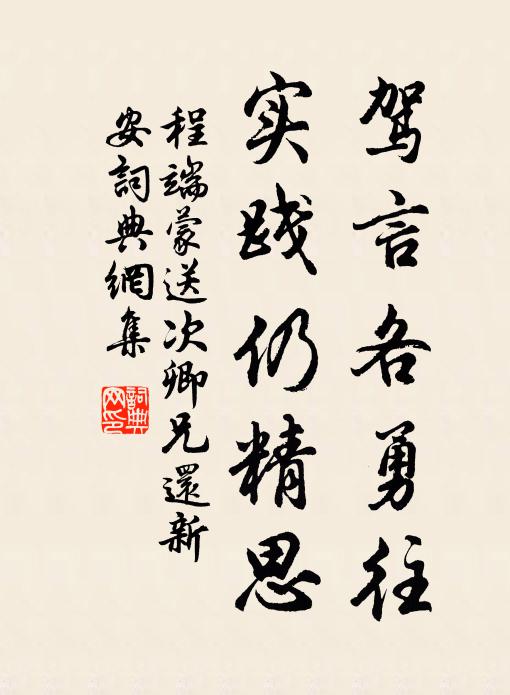 驾言各勇往
实践仍精思
程端蒙送次卿兄還新
安詞典網集
詞典
网印